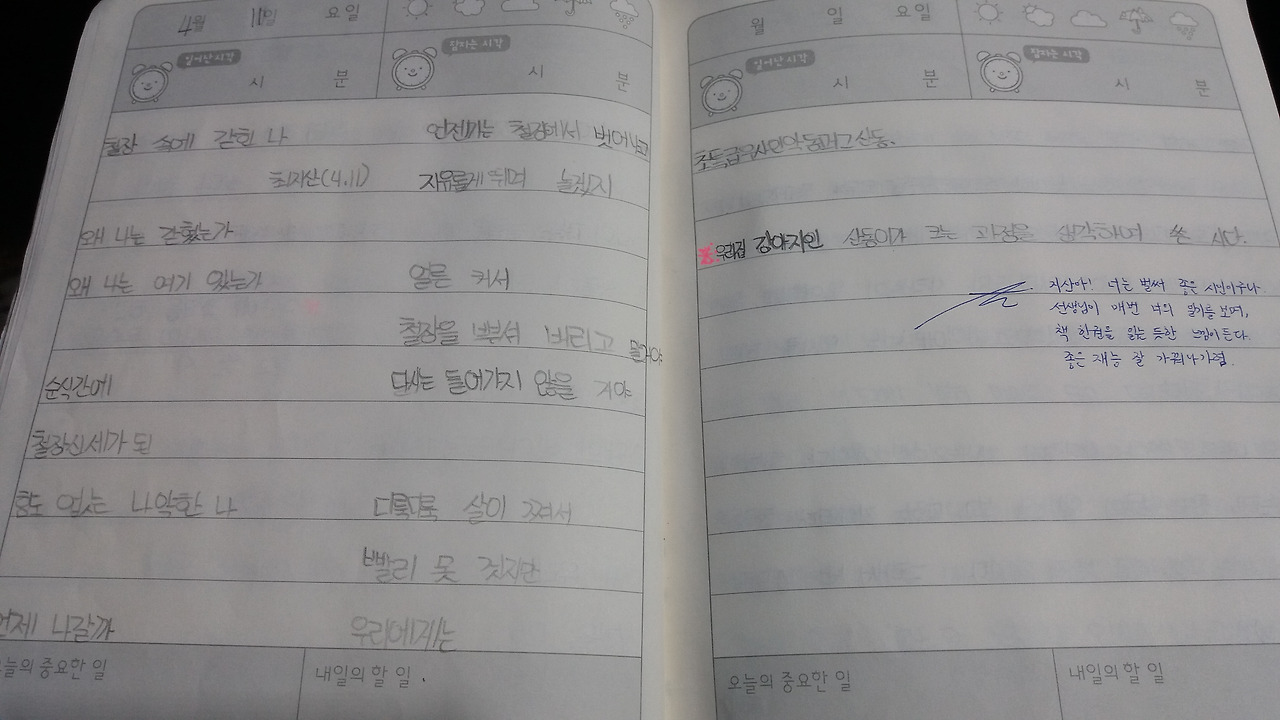 4월 11일 요일
일어난시각 시 분 잠자는 시각 시 분
철장 속에 갇힌 나
최지산(4.11)
왜 나는 갇혔는가
왜 나는 여기 있는가
순식간에
철장신세가 된
힘도 없는 나약한 나
언제 나갈까
언젠가는 철장에서 벗어나
자유롭게 뛰며 놀겠지
얼른 커서
철장을 부숴 버리고
다시는 들어가지 않을 거야
디룩디룩 살이 쪄서
빨리 못 뛰지만
우리에게는
오늘의 중요한 일 내일의 할 일
월 일 요일
일어난시각 시 분 잠자는 시각 시 분
산동.
우리집 강아지인 산동이가 크는 과정을 생각하며 쓴 시다.
지산아! 너는 벌써 좋은 시인이구나.
선생님이 매번 너의 일기를 보며,
책 한권을 읽는 듯한 느낌이 든다.
좋은 재능 잘 가꿔나가렴.
오늘의 중요한 일 내일의 할 일